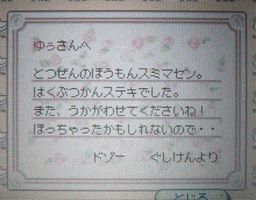 ゆぅさんへ
とつぜんのほうもんスミマセン。
はくぶつかんステキでした。
また、うかがわせてくださいね!
ほっちゃったかもしれないので・・
ドゾー　ぐしけんより
とじる